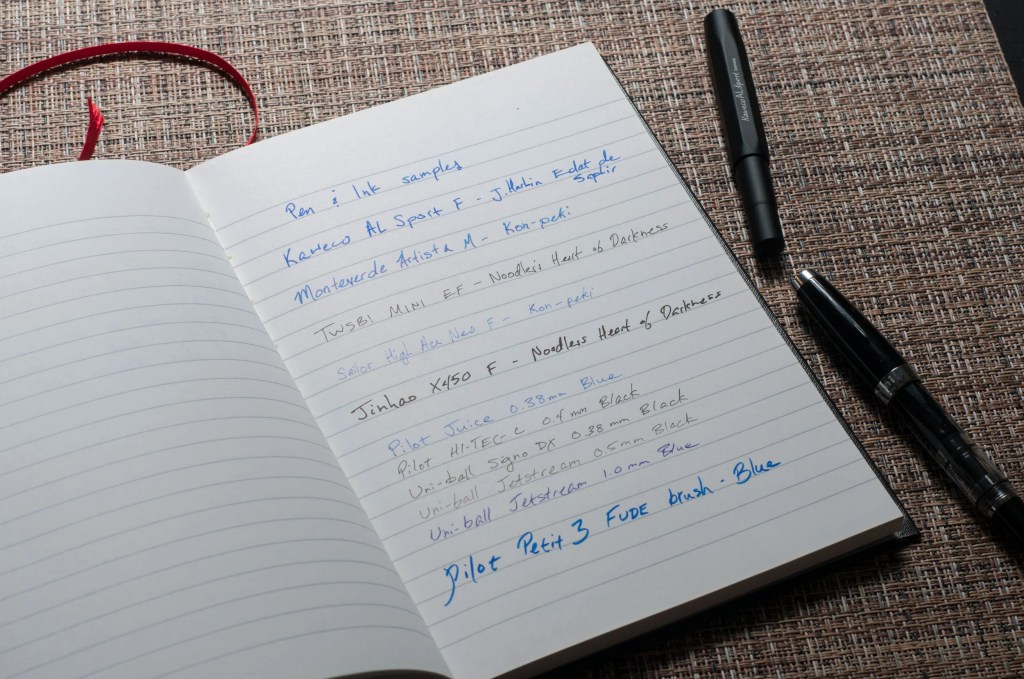 Pen & Ink samples
Kaweco AL Sport F - J. Herbin Eclat de
Saphir
Monteverde Artista M - Kon-peki
TWSBI MINI EF - Noodler's Heart of Darkness
Sailor High Ace Neo F - Kon-peki
Jinhao X450 F - Noodlers Heart of Darkness
Pilot Juice 0.38mm Blue
Pilot HI-TEC-C 0.4 mm Black
Uni-ball Signo DX 0.38 mm Black
Uni-ball Jetstream 0.5mm Black
Uni-ball Jetstream 1.0mm Blue
Pilot Petit 3 FUDE brush - Blue
Kaweco AL Sport